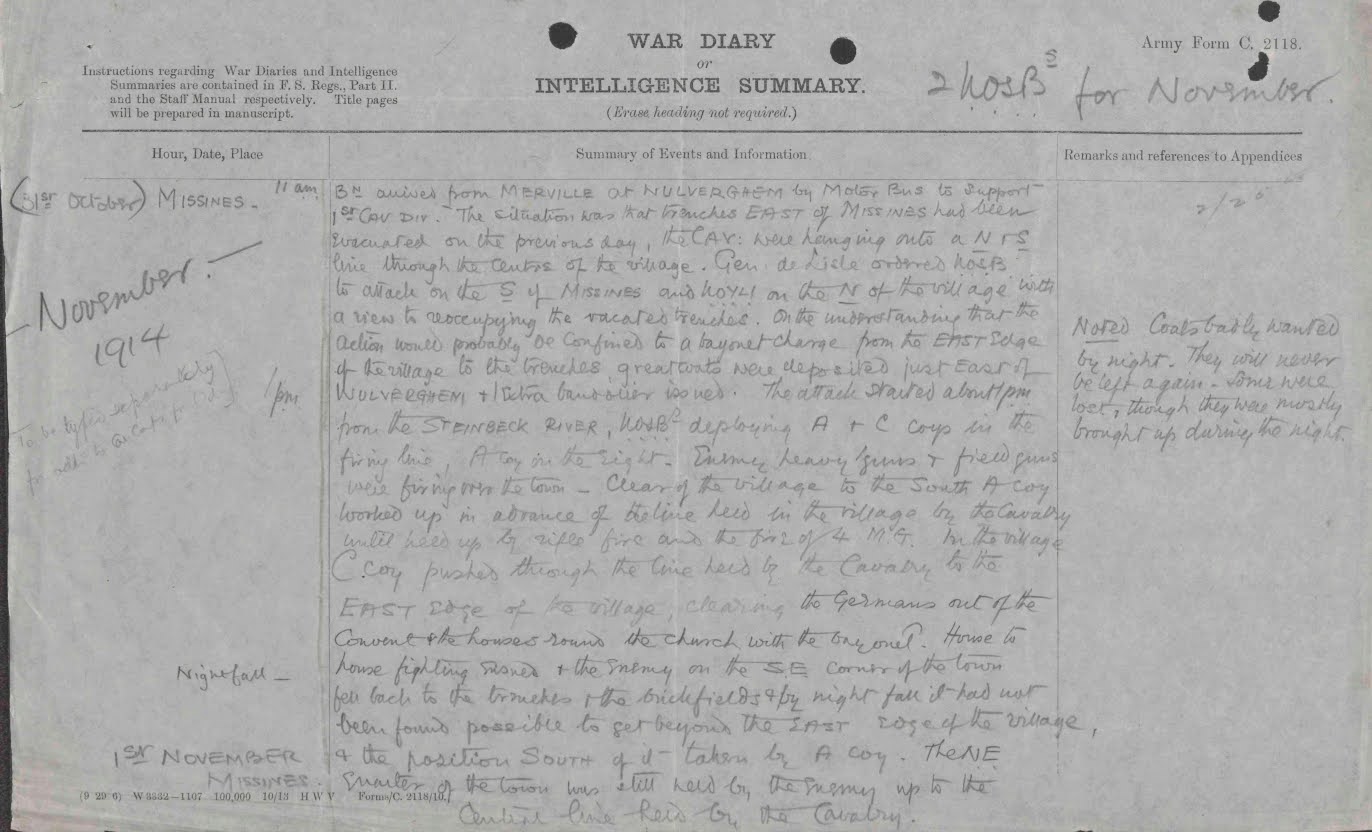 WAR DIARY
or
INTELLIGENCE SUMMARY.
(Erase heading not required.)
Army Form C. 2118.
Instructions regarding War Diaries and Intelligence
Summaries are contained in F. S. Regs., Part II.
and the Staff Manual respectively. Title pages
will be prepared in manuscript.
2 KOSBs for November.
Hour, Date, Place
Summary of Events and Information
Remarks and references to Appendices
(31st October) MISSINES.
11 am
November.
1914
To be typed separately
1 pm
Nightfall
1st NOVEMBER
MISSINES.
Bn arrived from MERVILLE at NULVERGHEM by Motor Bus to support
1st Cav Div. The situation was that trenches EAST of MISSINES had been
evacuated on the previous day, the CAV: were hanging onto a N & S
line through the centre of the village. Gen. de Lisle ordered KOSB
to attack on the S of MISSINES and KOYLI on the N of the village with
a view to reoccupying the vacated trenches. On the understanding that the
action would probably be confined to a bayonet charge from the EAST Edge
of the village to the trenches, greatcoats were deposited just East of
WULVERGHEM & 1 Extra bandolier issued. The attack started about 1 pm
from the STEINBECK RIVER, KOSBs deploying A & C coys in the
firing line, A coy on the right. Enemy heavy guns & field guns
were firing over the town - Clear of the village to the South A coy
worked up in advance of the line held in the village by the Cavalry
until held up by rifle fire and the fire of 4 M.G. In the village
C. coy pushed through the line held by the Cavalry to the
EAST Edge of the village, clearing the Germans out of the
Convent & the houses round the church with the bayonet. House to
house fighting ensued & the Enemy on the S.E corner of the town
fell back to the trenches & the brickfields & by night fall it had not
been found possible to get beyond the EAST Edge of the village,
& the position SOUTH of it taken by A coy. The NE
Quarter of the town was still held by the Enemy up to the
Central line held by the Cavalry.
Noted Coats badly wanted
by night. They will never
be left again - Some were
lost, though they were mostly
brought up during the night.
(9 29 6) W 3332—1107 100,000 10/13 H W V Forms/C. 2118/10.